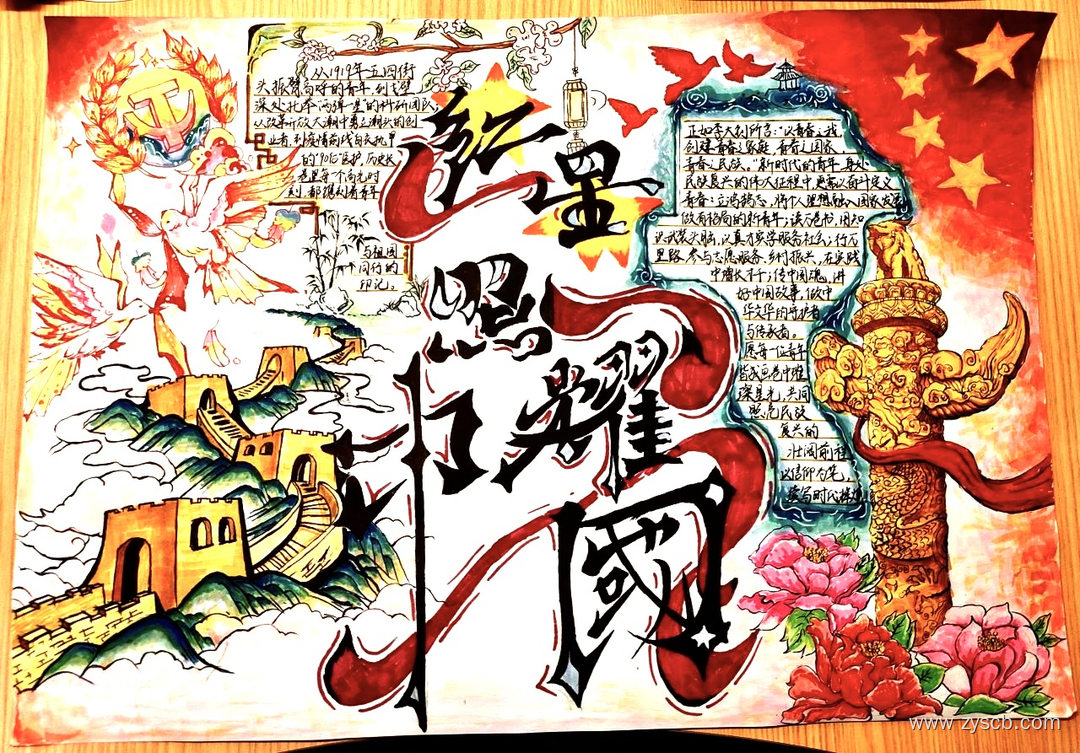 从1919年五四街
头振臂高呼的青年,到戈壁
深处扎牵"两弹一星"的科研团队;
从改革开放大潮中勇立潮头的创
业者,到疫情防线白衣执甲
的"90后"医护,历史长
卷里每个高光时
刻,都镌刻着青年
与祖国
同行的
印记。
红星
照耀
中國
正如李大钊所言:"以青春之我
创建青春之家庭,青春之国家
青春之民族。"新时代的青年,身处
民族复兴的伟大征程中,更需以奋斗定义
青春:立鸿鹄志,将个人理想融入国家发展
做有格局的新青年;读万卷书,用知
识武装头脑,以真才实学服务社会;行万
里路,参与志愿服务、乡村振兴,在实践
中增长才干;传中国魂,讲
好中国故事,做中
华文华的守护者
与传承者。
愿每一位青年
皆成
璨星光,共同
照亮民族
复兴的
壮阔前程
以信仰为笔,
续写时代
www.zyscb.com